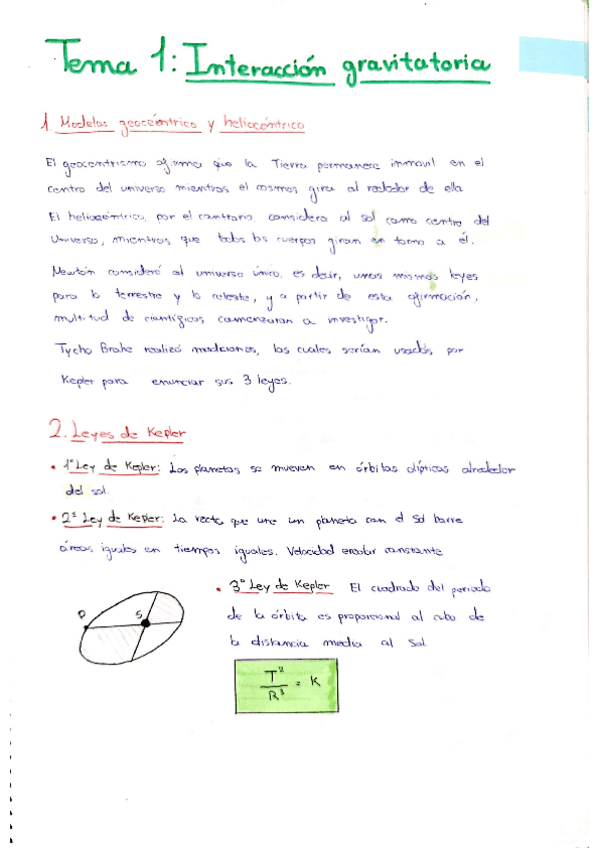 Tema 1: Interacción gravitatoria
1. Modelos geocéntrico y heliocéntrico
El geocentrismo afirma que la Tierra permanece inmovil en el
centro del universo mientras el cosmos gira al rededor de ella
El heliocéntrico, por el contrario considera al sol como centro del
Universo, mientras que todos los cuerpos giran en torno a él.
Newton consideró al universo único, es decir, unas mismas leyes
para lo terrestre y lo celeste, y a partir de esta afirmación,
multitud de científicos comenzaron a investigar.
Tycho Brahe realizó mediciones, las cuales serían usadas por
Kepler para enunciar sus 3 leyes.
2. Leyes de Kepler
• 1ª Ley de Kepler: Los planetas se mueven en órbitas elípticas alrededor
del sol.
• 2ª Ley de Kepler: La recta que une un planeta con el Sol barre
áreas iguales en tiempos iguales. Velocidad areolar constante
• 3ª Ley de Kepler El cuadrado del periodo
de la órbita es proporcional al cubo de
la distancia media al Sol
P
S
T²/R³ = K